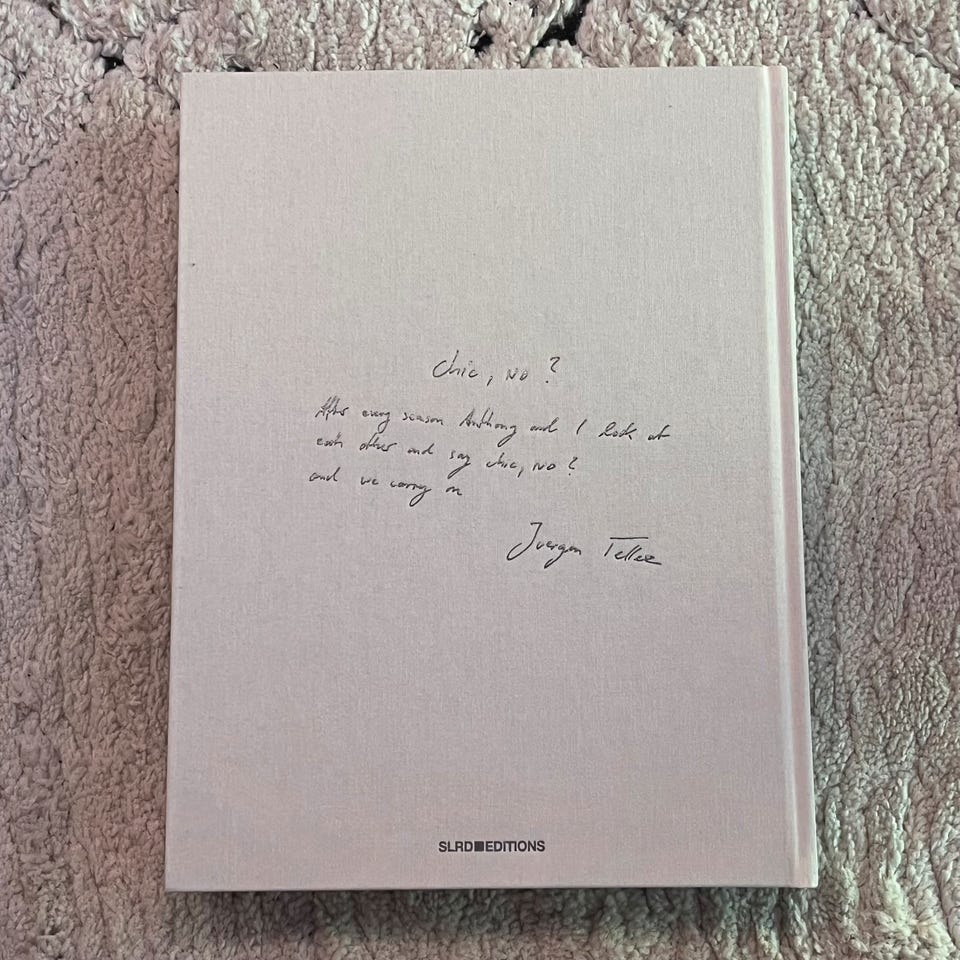 chic, no ?
After every season Anthony and I look at
each other and say chic, no ?
and we carry on
Juergen Teller
SLRD■EDITIONS